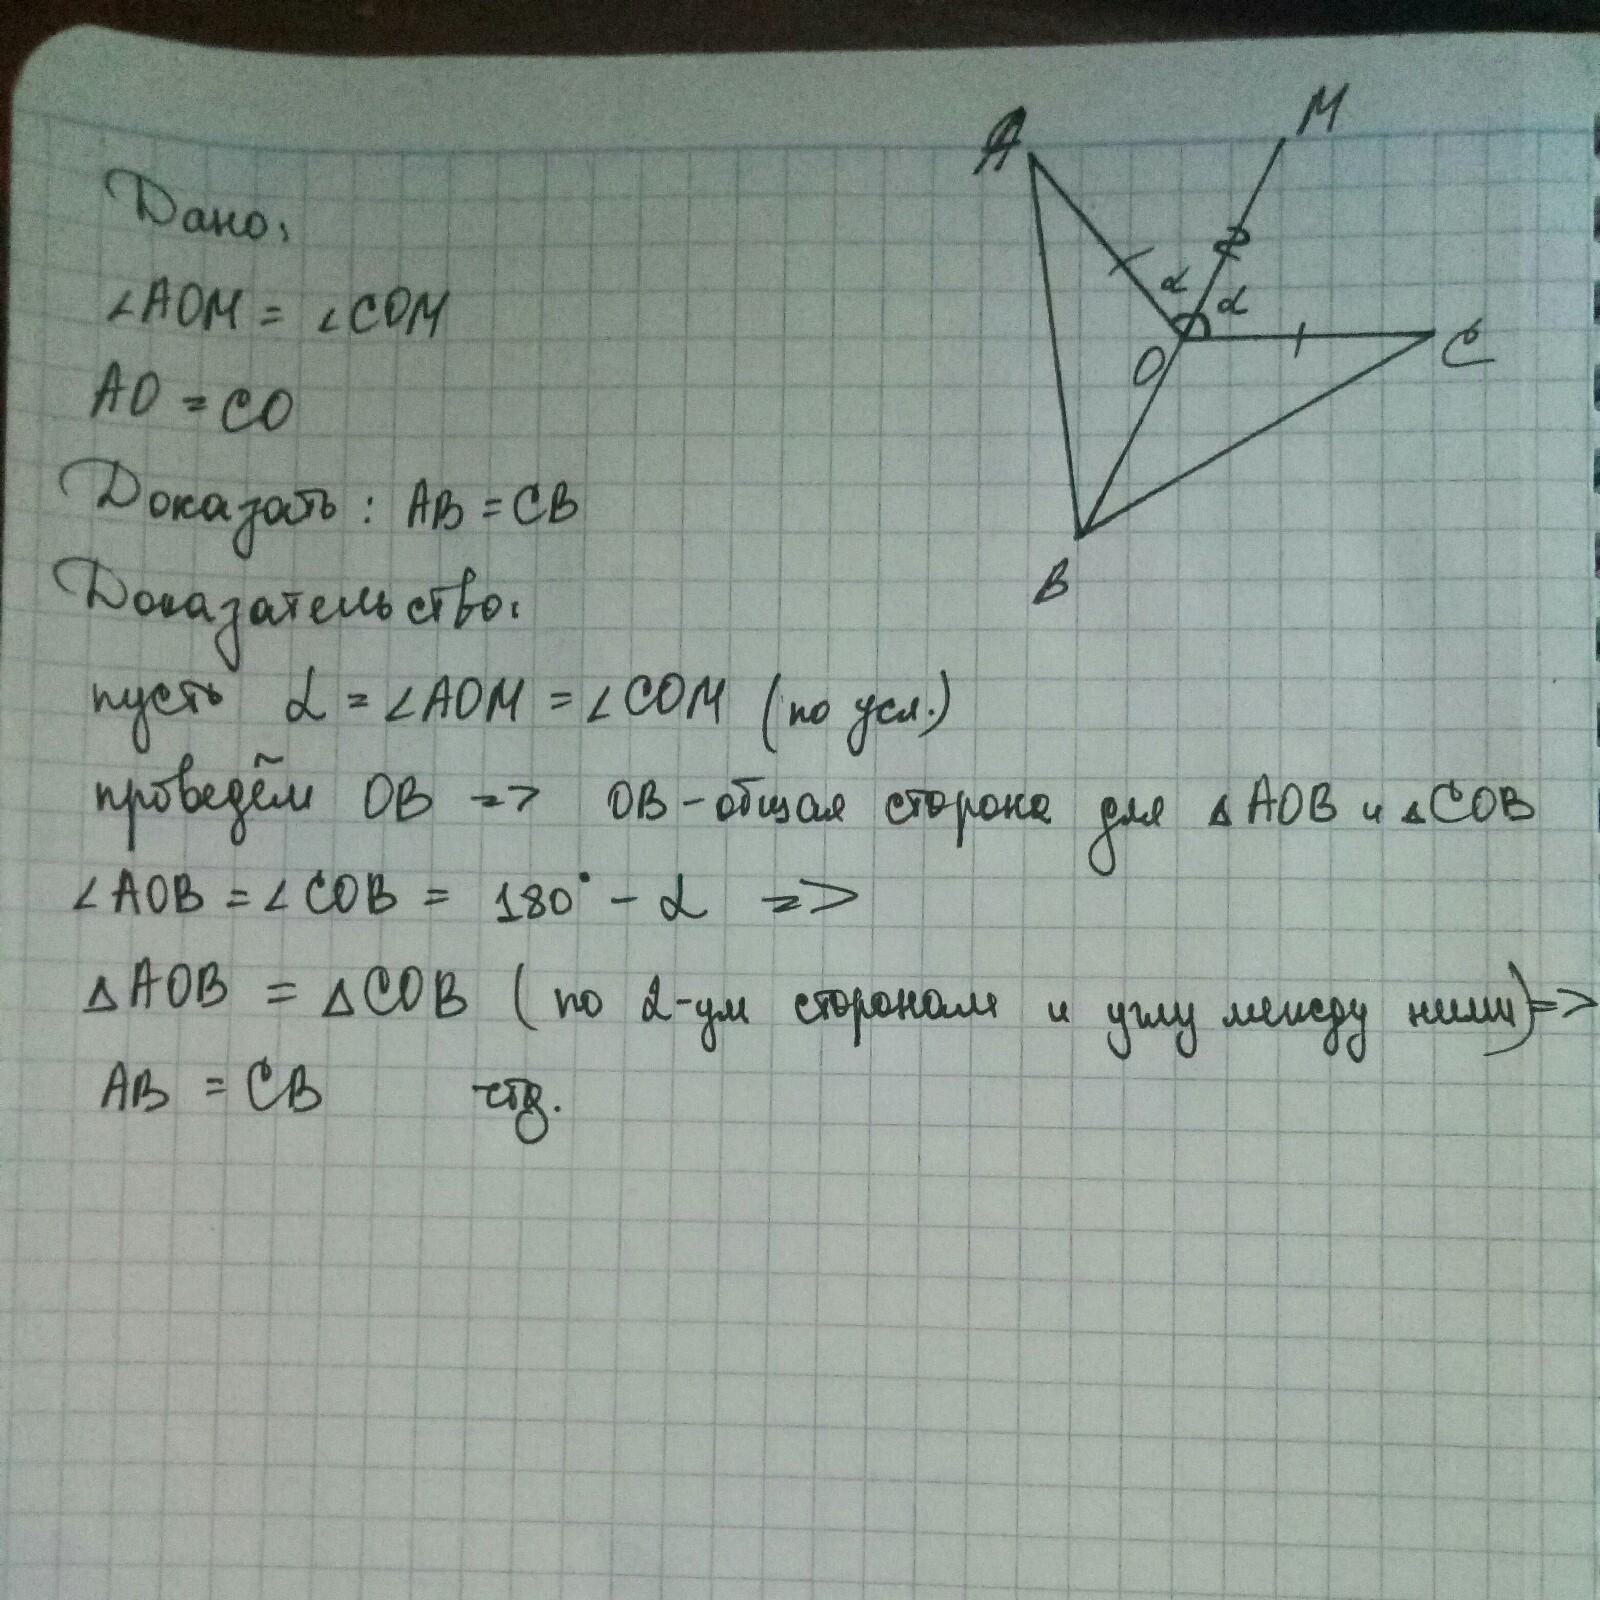 A
M
Дано:
∠AOM = ∠COM
α
α
O
C
AO = CO
Доказать: AB = CB
B
Доказательство:
пусть α = ∠AOM = ∠COM (по усл.)
проведём OB => OB - общая сторона для △AOB и △COB
∠AOB = ∠COB = 180° - α =>
△AOB = △COB (по 2-ум сторонам и углу между ними) =>
AB = CB чтд.